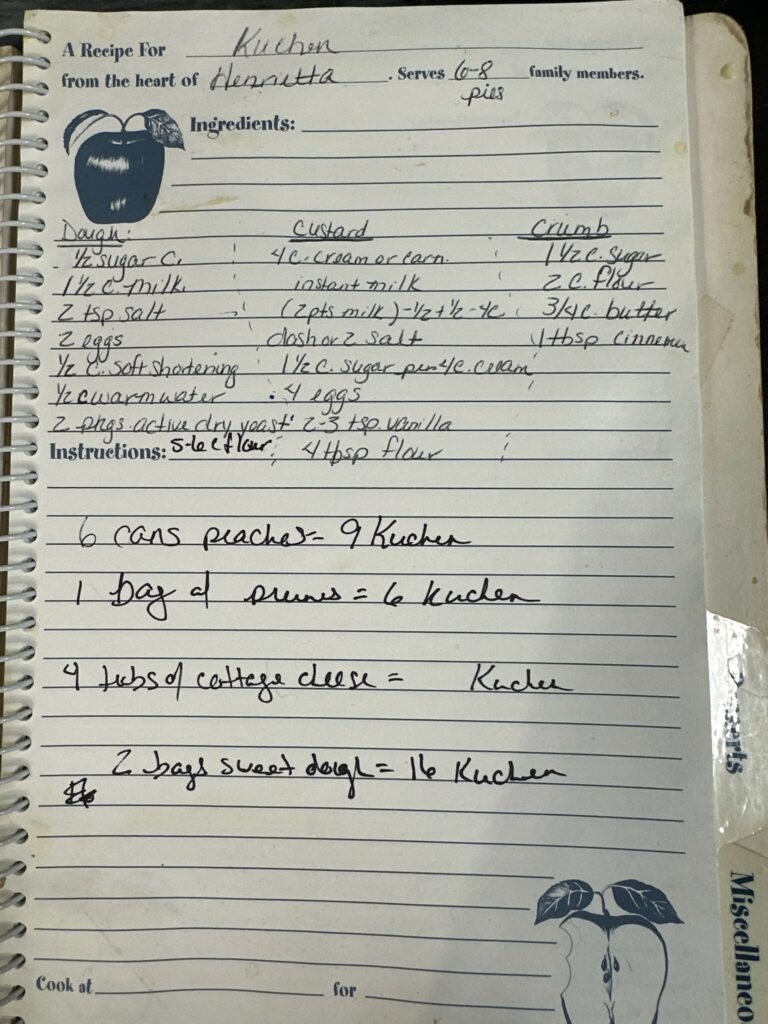 A Recipe For Kuchen
from the heart of Henrietta . Serves 6-8 family members.
pies
Ingredients:
Dough: Custard Crumb
1/2 sugar c. 4 c. cream or carn. 1 1/2 c. sugar
1 1/2 c. milk instant milk 2 c. flour
2 tsp salt (2 pts milk) - 1/2 + 1/2 - 4c. 3/4 c. butter
2 eggs dash or 2 salt 1 tbsp cinnemen
1/2 c. soft shortening 1 1/2 c. sugar per 4c. cream
1/2 c warm water 4 eggs
2 pkgs. active dry yeast 2-3 tsp. vanilla
Instructions: 5-6 c flour 4 tbsp flour
6 cans peaches = 9 Kuchen
1 bag of prunes = 6 Kuchen
4 tubs of cottage cheese = Kuchen
2 bags sweet dough = 16 Kuchen
Cook at for
Desserts
Miscellaneo